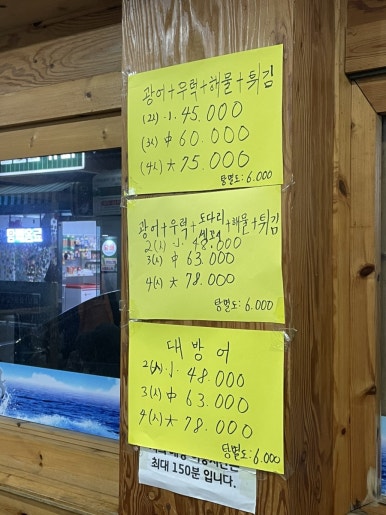 광어+우럭+해물+튀김
(2人) 小 45.000
(3人) 中 60.000
(4人) 大 75.000
탕별도: 6.000
광어+우럭+도다리+해물+튀김
세꼬시
2(人) 小 48.000
3(人) 中 63.000
4(人) 大 78.000
탕별도: 6.000
대방어
2(人) 小 48.000
3(人) 中 63.000
4(人) 大 78.000
탕별도: 6.000
최대 150분 입니다.